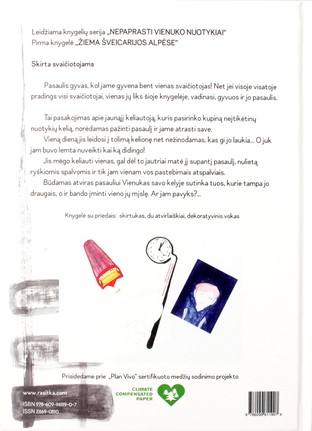 Leidžiama knygelių serija „NEPAPRASTI VIENUKO NUOTYKIAI"
Pirma knygelė „ŽIEMA ŠVEICARIJOS ALPĖSE"
Skirta svaičiotojams
Pasaulis gyvas, kol jame gyvena bent vienas svaičiotojas! Net jei visoje visatoje
pradings visi svaičiotojai, vienas jų liks šioje knygelėje, vadinasi, gyvuos ir jo pasaulis.
Tai pasakojimas apie jaunąjį keliautoją, kuris pasirinko kupiną neįtikėtinų
nuotykių kelią, norėdamas pažinti pasaulį ir jame atrasti save.
Vieną dieną jis leidosi į tolimą kelionę net nežinodamas, kas gi jo laukia... O juk
jam buvo lemta nuveikti kai ką didingo!
Jis mėgo keliauti vienas, gal dėl to jautriai matė jį supantį pasaulį, nulietą
ryškiomis spalvomis ir tik jam vienam vos pastebimais atspalviais.
Būdamas atviras pasauliui Vienukas savo kelyje sutinka tuos, kurie tampa jo
draugais, o ir bando įminti vieno jų mįslę. Ar jam pavyks?...
Knygelė su priedais: skirtukas, du atvirlaiškiai, dekoratyvinis vokas
Prisidedame prie „Plan Vivo" sertifikuoto medžių sodinimo projekto
www.rasitka.com
CLIMATE
COMPENSATED
PAPER